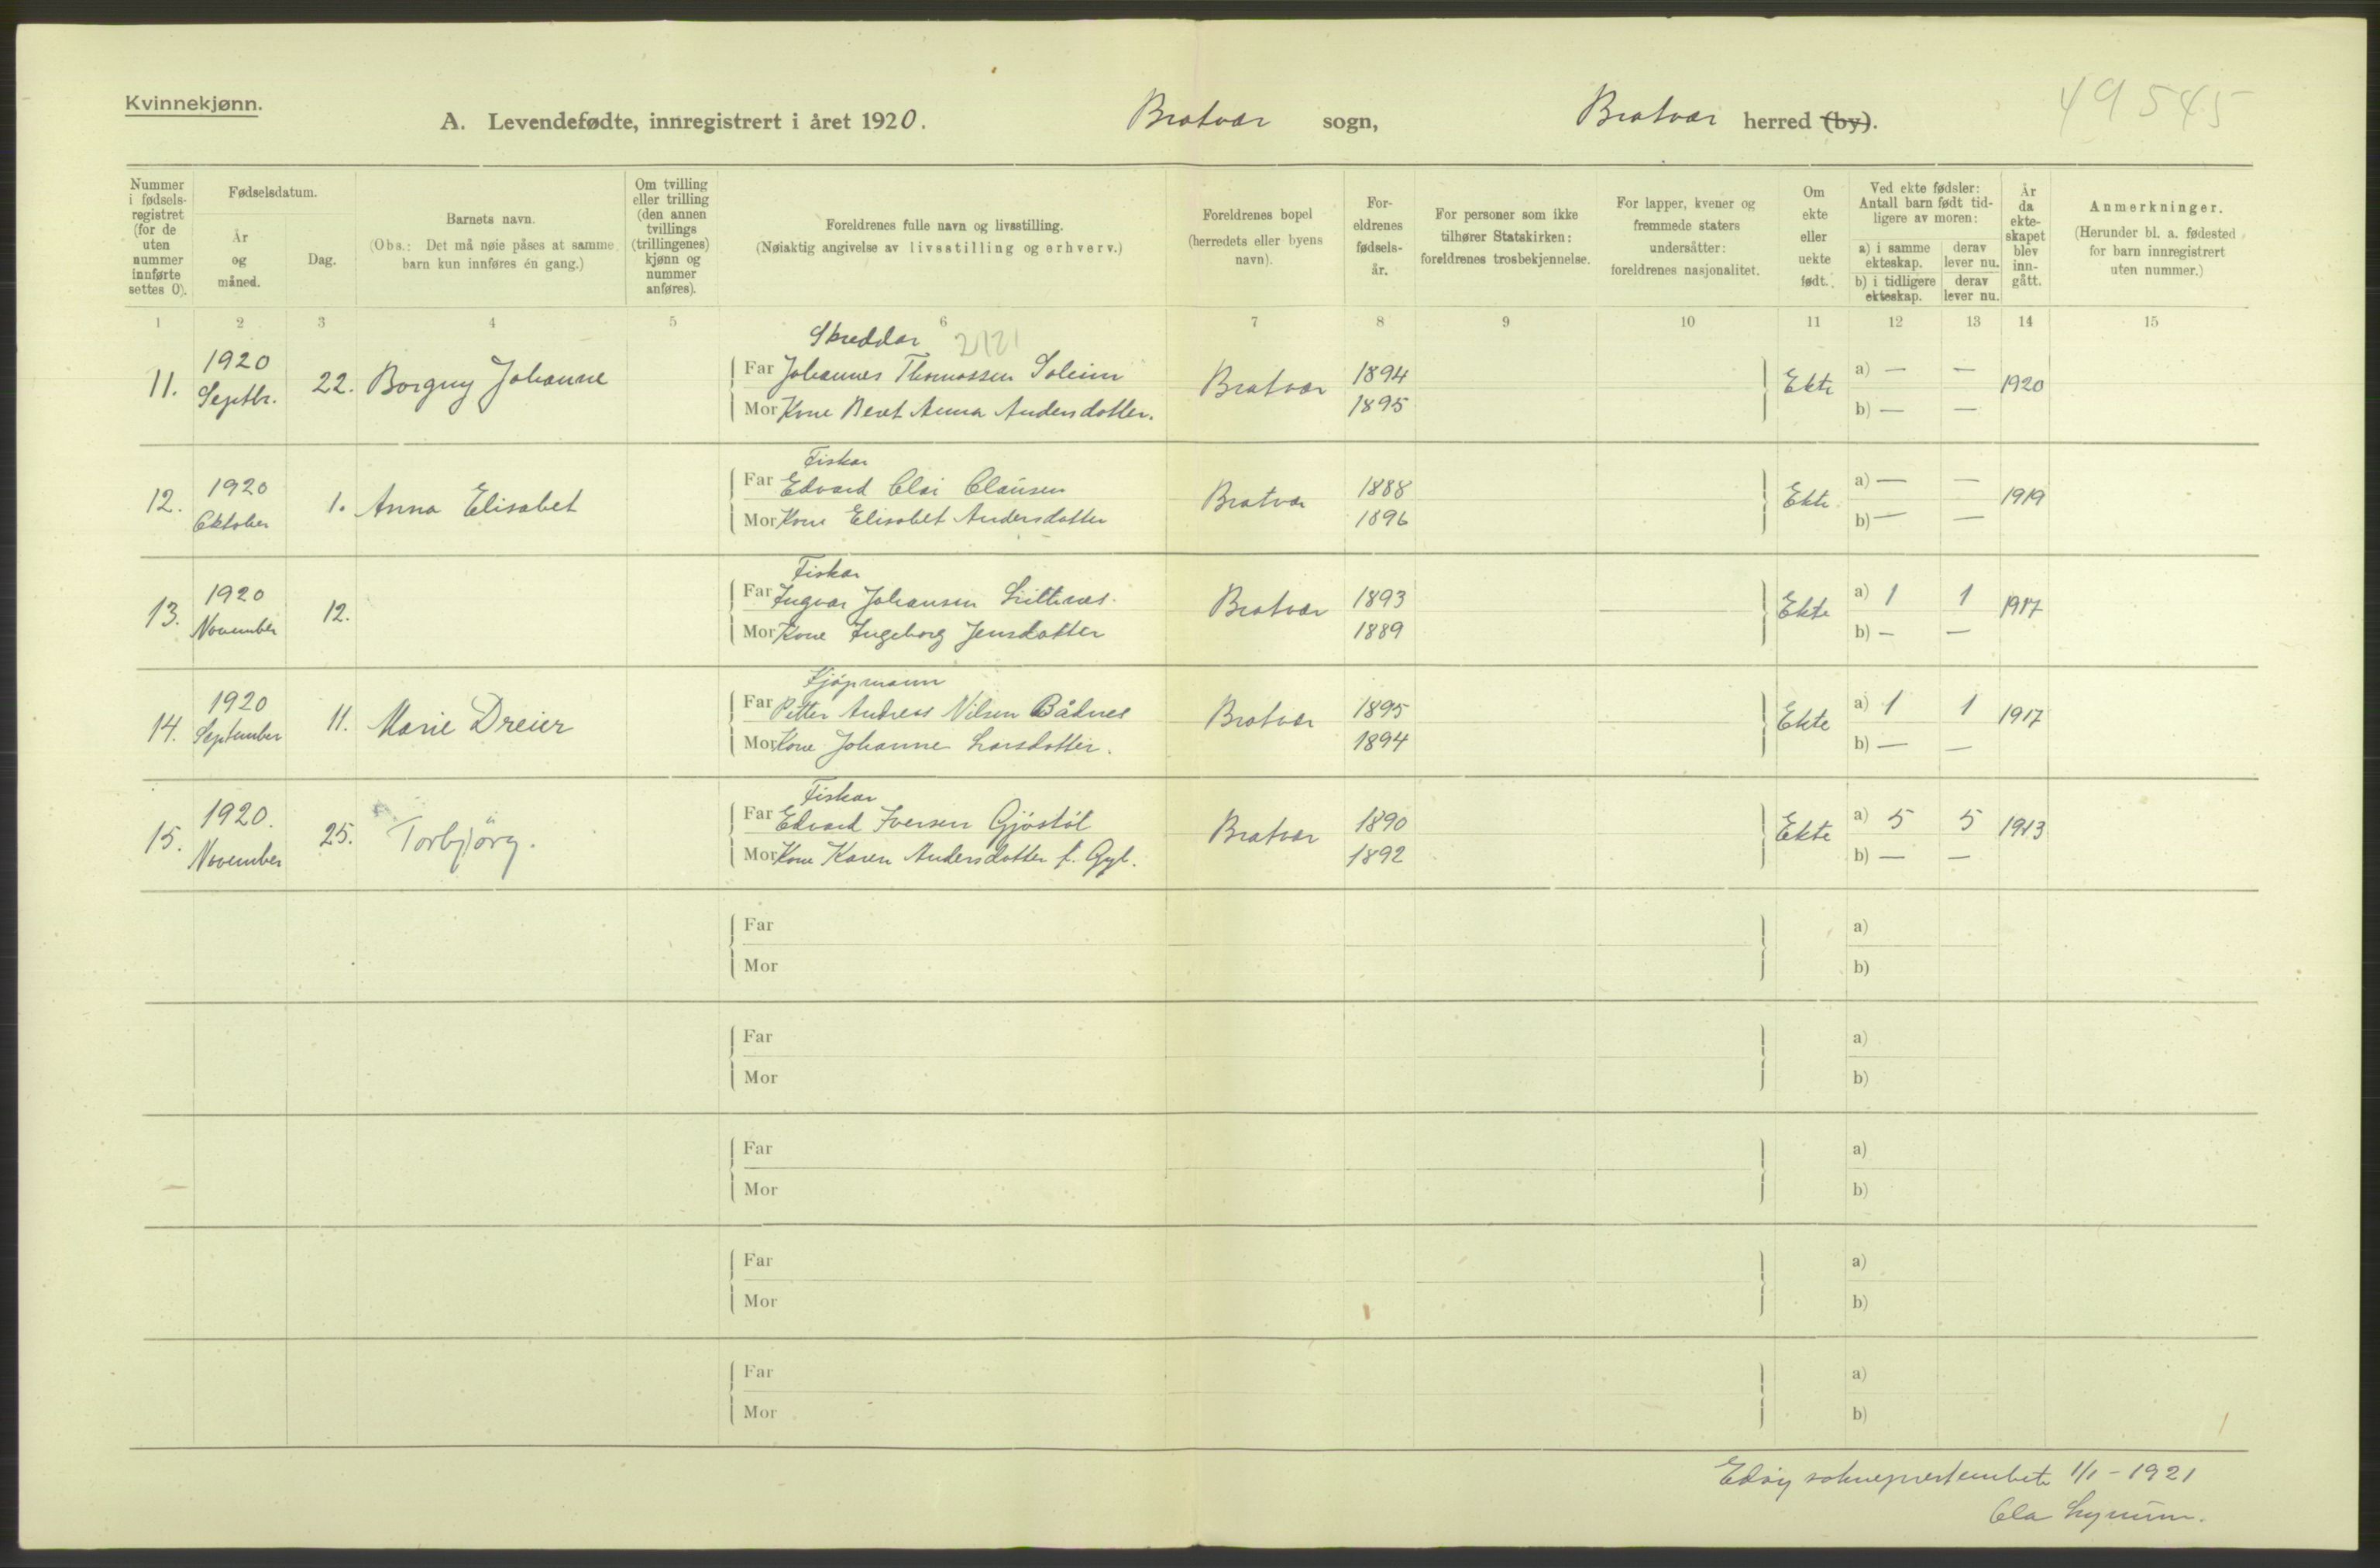 Kvinnekjønn.
A. Levendefødte, innregistrert i året 1920. Bratvær sogn, Bratvær herred (by).
49 545
Nummer i fødselsregistret (for de uten nummer innførte settes 0).
Fødselsdatum.
År og måned.
Dag.
Barnets navn.
(Obs.: Det må nøie påses at samme barn kun innføres én gang.)
Om tvilling eller trilling (den annen tvillings (trillingenes) kjønn og nummer anføres).
Foreldrenes fulle navn og livsstilling.
(Nøiaktig angivelse av livsstilling og erhverv.)
Foreldrenes bopel (herredets eller byens navn).
Foreldrenes fødselsår.
For personer som ikke tilhører Statskirken: foreldrenes trosbekjennelse.
For lapper, kvener og fremmede staters undersåtter: foreldrenes nasjonalitet.
Om ekte eller uekte født.
Ved ekte fødsler: Antall barn født tidligere av moren:
a) i samme ekteskap. derav lever nu.
b) i tidligere ekteskap. derav lever nu.
År da ekteskapet blev inngått.
Anmerkninger.
(Herunder bl. a. fødested for barn innregistrert uten nummer.)
1 2 3 4 5 6 7 8 9 10 11 12 13 14 15
Skreddar
11. 1920 Septbr. 22. Borgny Johanne Far Johannes Thomassen Soleim Bratvær 1894 Ekte a) — — 1920
Mor Kone Beret Anna Andersdotter. 1895 b) — —
Fiskar
12. 1920 Oktober 1. Anna Elisabet Far Edvard Clausen Bratvær 1888 Ekte a) — — 1919
Mor Kone Elisabet Andersdotter 1896 b) — —
Fiskar
13. 1920 November 12. Far Ingvar Johansen Bratvær 1893 Ekte a) 1 1 1917
Mor Kone Ingeborg Jensdotter 1889 b) — —
Kjøpmann
14. 1920 September 11. Marie Dreier Far Petter Andreas Nilsen Bådnes Bratvær 1895 Ekte a) 1 1 1917
Mor Kone Johanne Larsdotter. 1894 b) — —
Fiskar
15. 1920. November 25. Torbjörg. Far Edvard Iversen Gjöstöl Bratvær 1890 Ekte a) 5 5 1913
Mor Kone Karen Andersdotter f. Gyl. 1892 b) — —
Far a)
Mor b)
Far a)
Mor b)
Far a)
Mor b)
Far a)
Mor b)
Far a)
Mor b)
Edöy sokneprestembete 1/1 - 1921
Ola